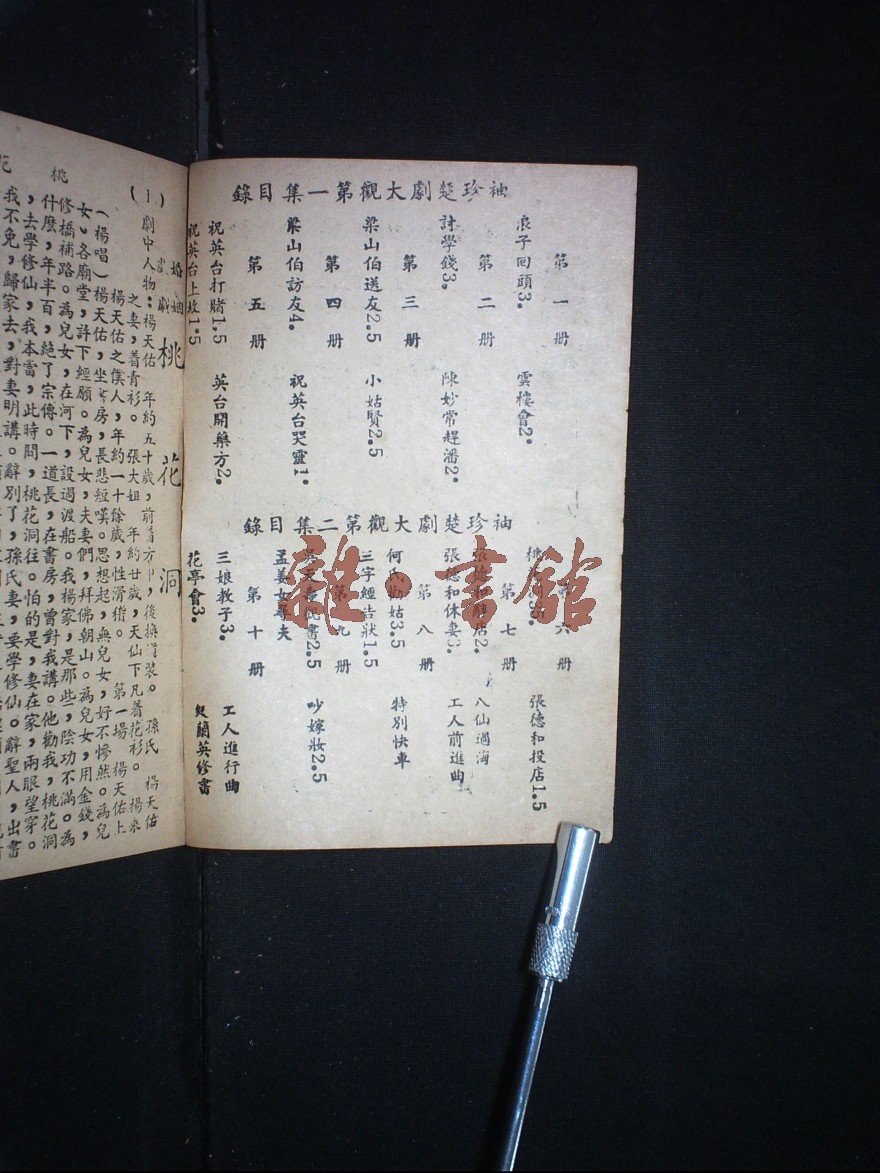 袖珍楚劇大觀第一集目錄
第一册
浪子回頭3. 雲樓會2.
第二册
討學錢3. 陳妙常趕潘2.
第三册
梁山伯送友2.5 小姑賢2.5
第四册
梁山伯訪友4. 祝英台哭靈1.
第五册
祝英台打賭1.5 英台開藥方2.
祝英台上坟1.5
袖珍楚劇大觀第二集目錄
第六册
桃花洞3. 張德和投店1.5
第七册
張德和 店2. 八仙過海
張德和休妻3. 工人前進曲
第八册
何氏勸姑3.5 特別快車
三字經告狀1.5
第九册
書2.5 吵嫁妝2.5
孟姜女尋夫
第十册
三娘教子3. 工人進行曲
花亭會3. 蘭英修書
桃
婚姻戲劇 桃花洞
(1)劇中人物：楊天佑 年約五十歲，前着方巾，後換道裝。 孫氏 楊天佑
之妻，着青衫。 張大姐 年約廿歲，天仙下凡着花衫。 楊來
楊天佑之僕人，年約一十餘歲，性滑稽。 第一場 楊天佑上
(楊唱)楊天佑，坐 房，長悲短嘆。思想起，無兒女，好不慘然。為兒
女，各廟堂，許下經願。為兒女，夫妻們，拜佛朝山。為兒女，用金錢，
修橋補路。為兒女，在河下，設過渡船。我楊家，是那些，陰功不滿。為
什麼，年半百，絕了宗傳。一道長，在書房，曾對我講。他勸我，桃花洞
，去學修仙，我本當，此時間，桃花洞往。怕的是，妻在家，兩眼望穿。
我不免，歸家去，對妻明講。辭別了，孫氏妻，要學修仙。辭聖人，出書
雜·書館